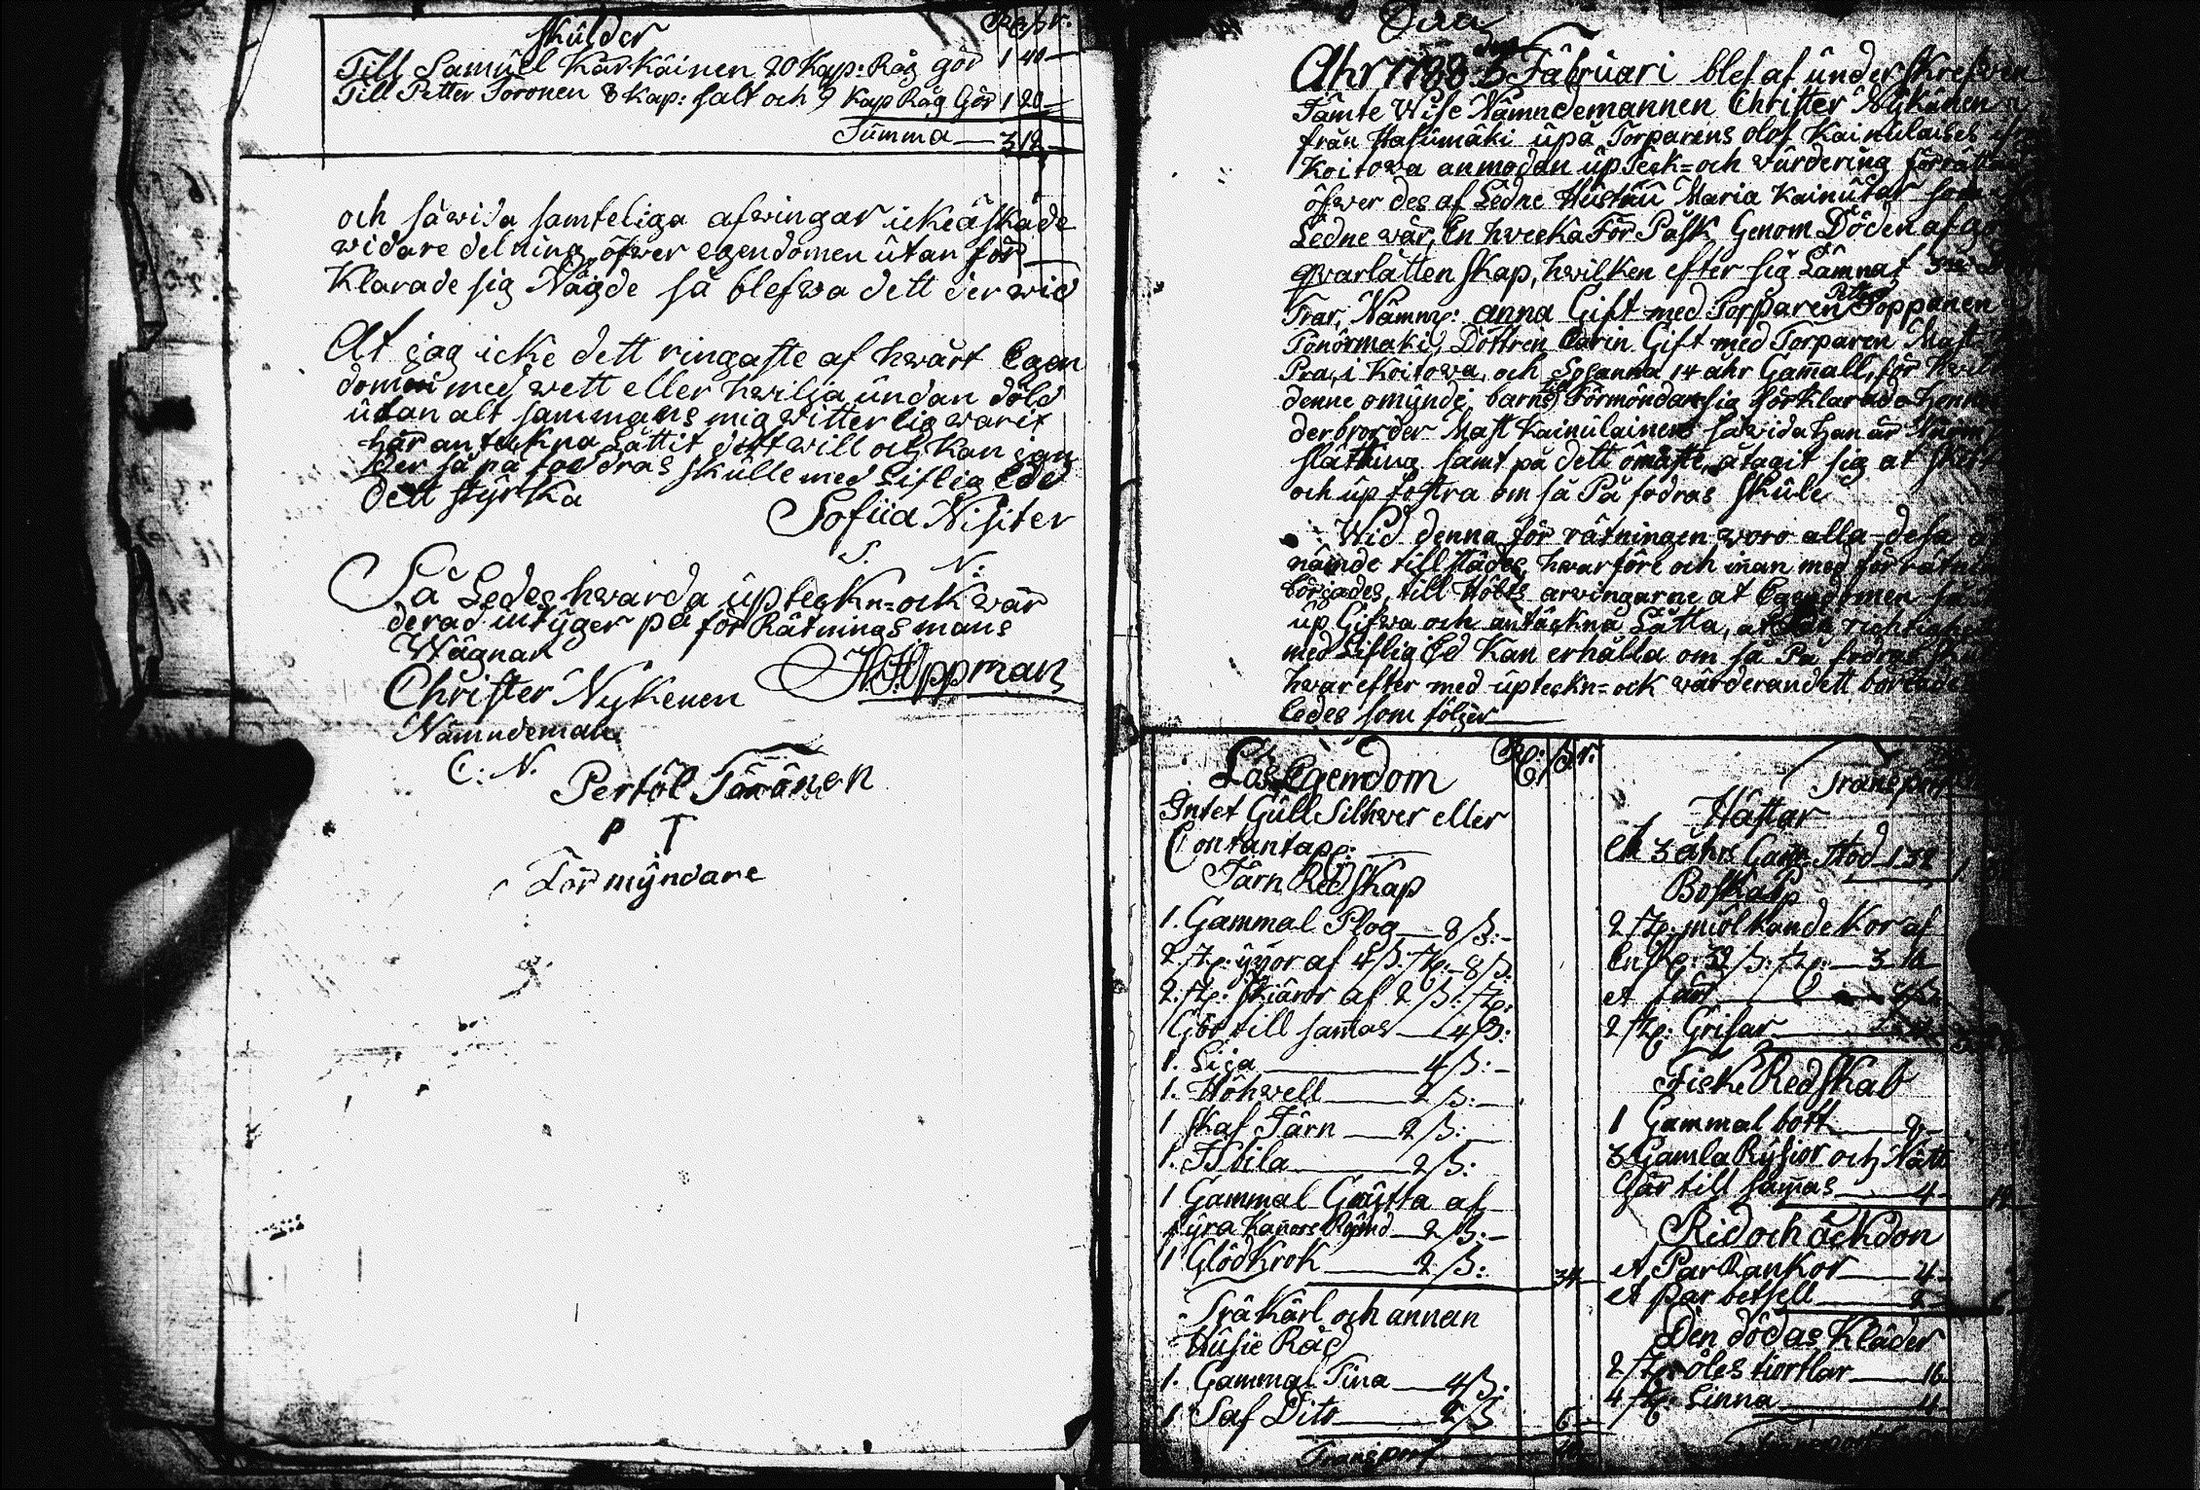 Skulder
Rd ßr:
Till Samuel Karkäinen 20 Kap: Råg gör 1 40 —
Till Petter Toronen 8 Kap: salt och 9 Kap Råg Gör 1 20 —
Summa — 3 12 —
och såwida samteliga afwingar icke äskade
widare delning öfwer egendomen utan för
Klarade sig Nägde så blefwa dett der wid
At jag icke dett ringaste af hwart Egen
domen med wett eller hwilja undan döld
utan alt sammans mig witterlig warit
här anteckna Låttit dett will och kan jag
der så på fodras skulle med Liflig Ed
dett styrka
Sofiia Nisiter
S. N:
Så Ledes hwarda upteckn= ock wär
derad intyger på för Rätnings mans
Wägnar
Christer Nykenen
H. Oppman
Nämndeman
C: N.
Pertöl Torönen
P T
För myndare
Ahr 1788 Fäbruari blef af underskrefven
Jämte Wise Nämndemannen Christer Nykänen
från Hasumäki upå Torparens olof Kainulaises
Koitowa anmodan upteck= och wärdering förrättad
öfwer des af Ledne Hustru Maria Kainutar som
Ledne wår, En hwecka För Påsk Genom Döden afgå
qwarlåtten skap, hwilken efter sig Lämnat
Trar, Nämnl: anna Gift med Torparen Petter Toppanen
Tonörmäki, Döttren Carin Gift med Torparen Mast
Pea, i Koitowa, och Sosanna 14 ahr Gamall, för
denne omyndi barns Förmöndare sig förklarade
derbroder Mast Kainulainen såwida han är
släkting samt på dett ömaste, åtagit sig at
och upfostra om så På fodras skule
Wid denna för rätningen woro alla desa
nämde till städes, hwarföre och innan med förrätni
börjades, till Höls arwingarne at Egendomen
up Gifwa och antäckna Låtta, at richtighet
med Liflig Ed Kan erhålla om så På fodras
hwar efter med upteckn= ock wärderandett börjades
Ledes som följer
Lös Egendom
Rd: ßr:
Intet Gull Silhwer eller
Contanta pp: —
Järn Redskap
1. Gammal Plog — 8 ß: —
2 st: yxor af 4 ß: st: — 8 ß:
2. st: skiäror af 2 ß: st:
Gör till samas — 4 ß:
1. Lija — 4 ß: —
1. Höhwell — 2 ß: —
1 skaf Järn — 2 ß: —
1. Isbila — 2 ß:
1 Gammal Grytta af
fyra Kanors Rymd — 2 ß: —
1 Glödkrok — 2 ß:
34 —
Trä Kärl och annan
Husie Råd
1. Gammal Tina — 4 ß:
1 Saf Dito — 2 ß
6 —
Transport — 40
Transport
Hästar
Et 3 ahrs Gam: stod 1 32
Boskap
2 st: miölkande Kor af
En Rd: 32 ß: st: — 3 16
et fåår
2 st: Grisar
Fiske Redskab
1 Gammal bott
3 Gamla Rysior och Nätt
Gär till samas — 4 —
Rid och åckdon
et Par Rankor — 4 —
et Par betsell — 2 —
Den dödas Kläder
2 st: öles tiortlar — 16
4 st: Linna — 4
Transport